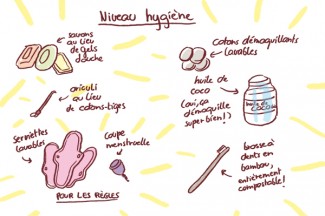 Niveau hygiène
savons
au lieu
de gels
douche
oriculi
au lieu
de cotons-tiges
Serviettes
lavables
Coupe
menstruelle
POUR LES RÈGLES
cotons démaquillants
lavables
huile de
coco
(oui, ça
démaquille
super bien!)
huile de
COCO
brosse à
dents en
bambou,
entièrement
compostable!